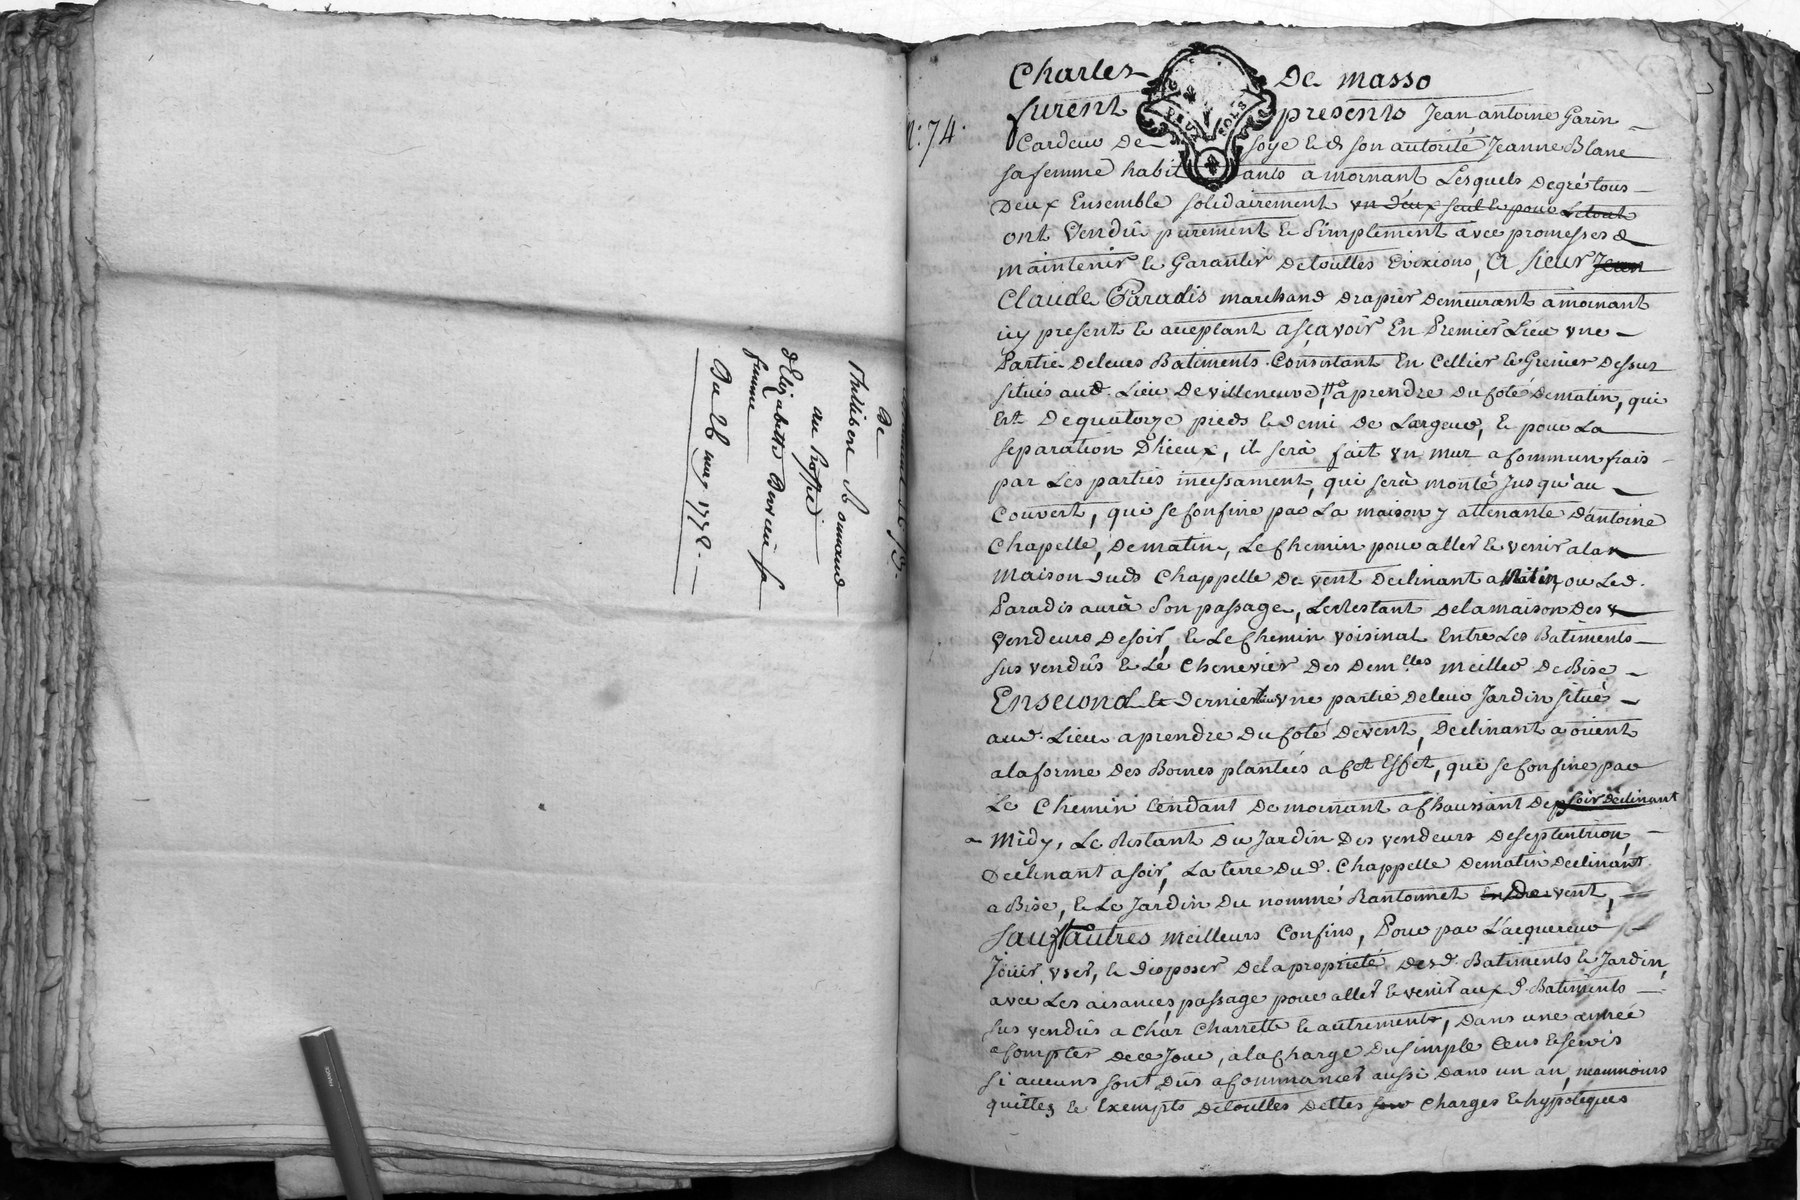 De
Phillibert
au
d'Elizabette
femme
Du 26 may 1778.
N.° 74.
Charles De masso
furent presents Jean antoine Garin
Cardeur De soye & de son autorité Jeanne Blanc
sa femme habitants a mornant Lesquels de gré tous
Deux Ensemble solidairement un d'eux seul le pour Le tout
ont Vendû purement & simplement avec promesses de
maintenir & Garantir de touttes Evixions, a sieur Jean
Claude Paradis marchand drapier demeurant a mornant
icy present & acceptant asçavoir En Premier Lieu vne
Partie de leurs Batiments Consistant En Cellier & Grenier Dessus
situés aud. Lieu De villeneuve, a prendre du Coté de matin, qui
Est De quatorze pieds & demi de Largeur, & pour La
separation D'hceux, il serà fait vn mur a Commun frais
par Les parties incessament, qui serà monté Jusqu'au
Couvert, qui se Confine par La maison y attenante d'antoine
Chapelle, de matin, Le Chemin pour aller & venir a la
Maison dud. Chappelle de vent declinant a Matin, ou Led.
Paradis aurà son passage, Le Restant de la maison des v
Vendeurs de soir, & Le Chemin voisinal Entre Les Batiments
sus vendûs & Le Chenevier des Dem.lles meiller de Bise
En second & Dernier lieu vne partie de leur Jardin situé
aud. Lieu a prendre du Coté de vent, declinant a orient
a la forme des Bornes plantées a Cet Effet, qui se Confine par
Le Chemin tendant De mornant a Chaussant de soir declinant
a Midy, Le Restant Du Jardin Des vendeurs de septentrion,
Declinant a soir, La terre Dud. Chappelle de matin declinant
a Bise, & Le Jardin Du nommé Rantonnet de vent,
Sauf autres meilleurs Confins, Pour par L'acquereur
Joüir, vser, & disposer de la proprieté desd. Batiments & Jardin,
avec Les aisances, passage pour aller & venir aux d. Batiments
sus vendûs a Char Charrette & autrements, Dans une année
a Compter de ce Jour, a la Charge Du simple Cens & servis
si aucuns sont Dûs a Commancer aussi Dans un an, neammoins
quittes & Exempts de touttes dettes Charges & hypoteques